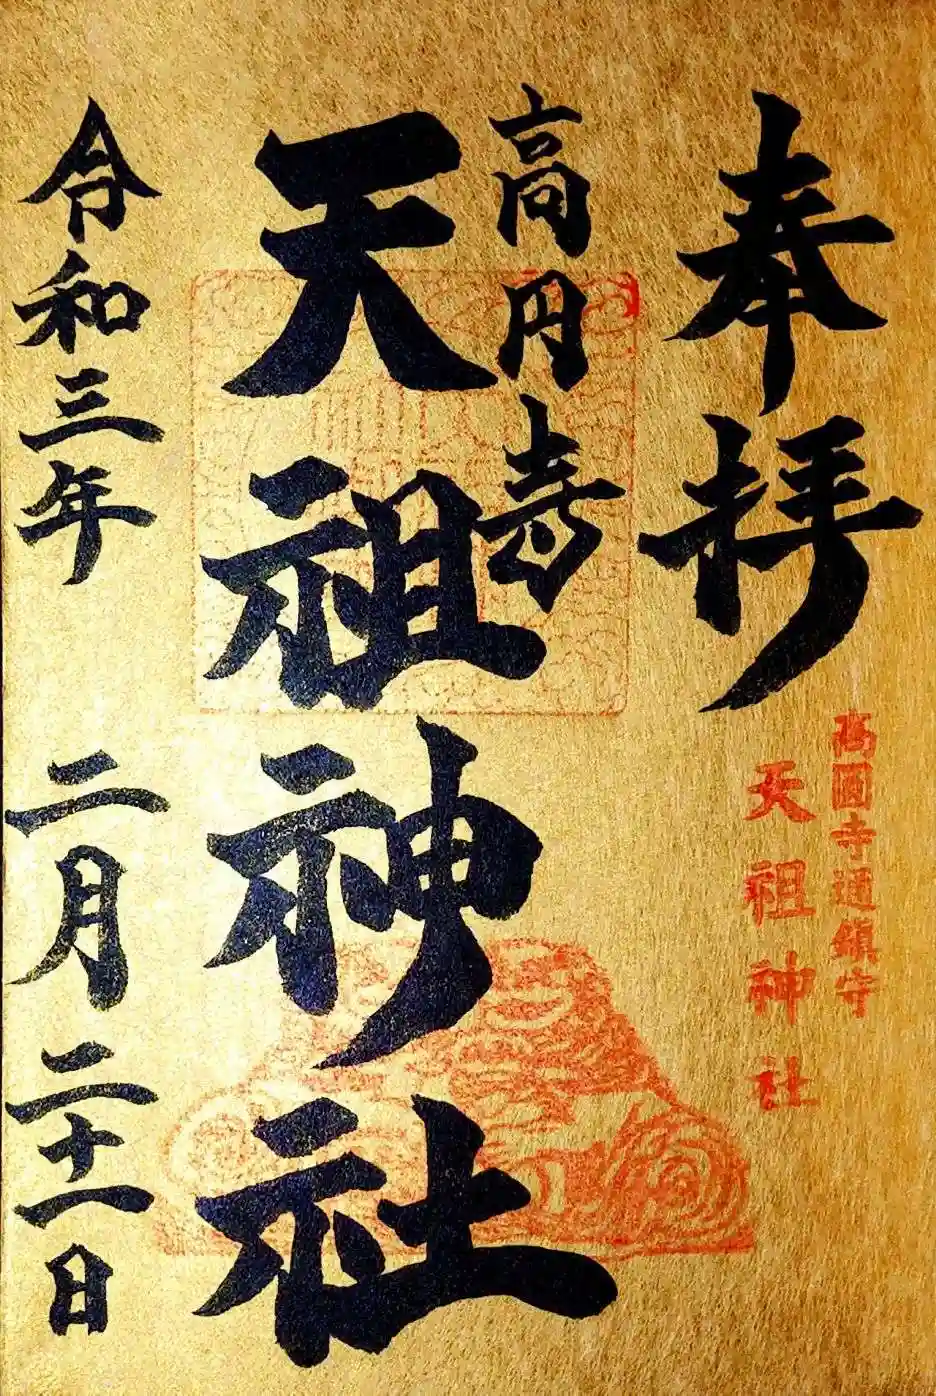 奉拝
高圓寺通鎮守
天祖神社
高円寺
天祖神社
令和三年 二月二十一日